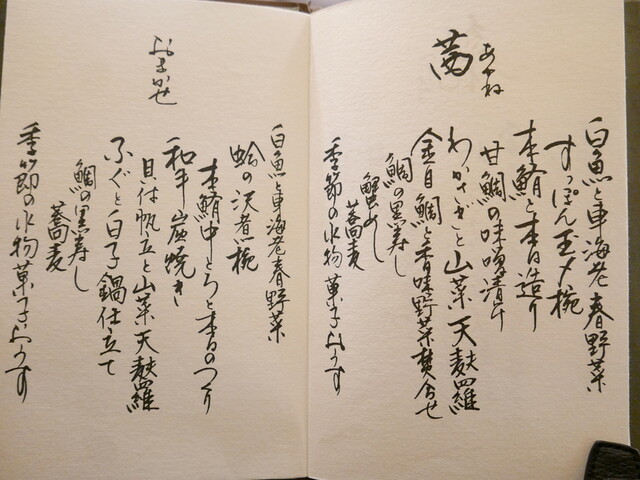 茜
あかね
白魚と車海老 春野菜
すっぽん玉〆椀
本鮪と本日造り
甘鯛の味噌漬け
わかさぎと山菜天麩羅
金目鯛と香味野菜焚合せ
鯛の黒寿し
蟹めし
蕎麦
季節の水物 菓子 おうす
おまかせ
白魚と車海老春野菜
蛤の沢煮椀
本鮪中とろと本日のつくり
和牛炭焼き
貝付帆立と山菜天麩羅
ふぐと白子鍋仕立て
鯛の黒寿し
蕎麦
季節の水物菓子おうす